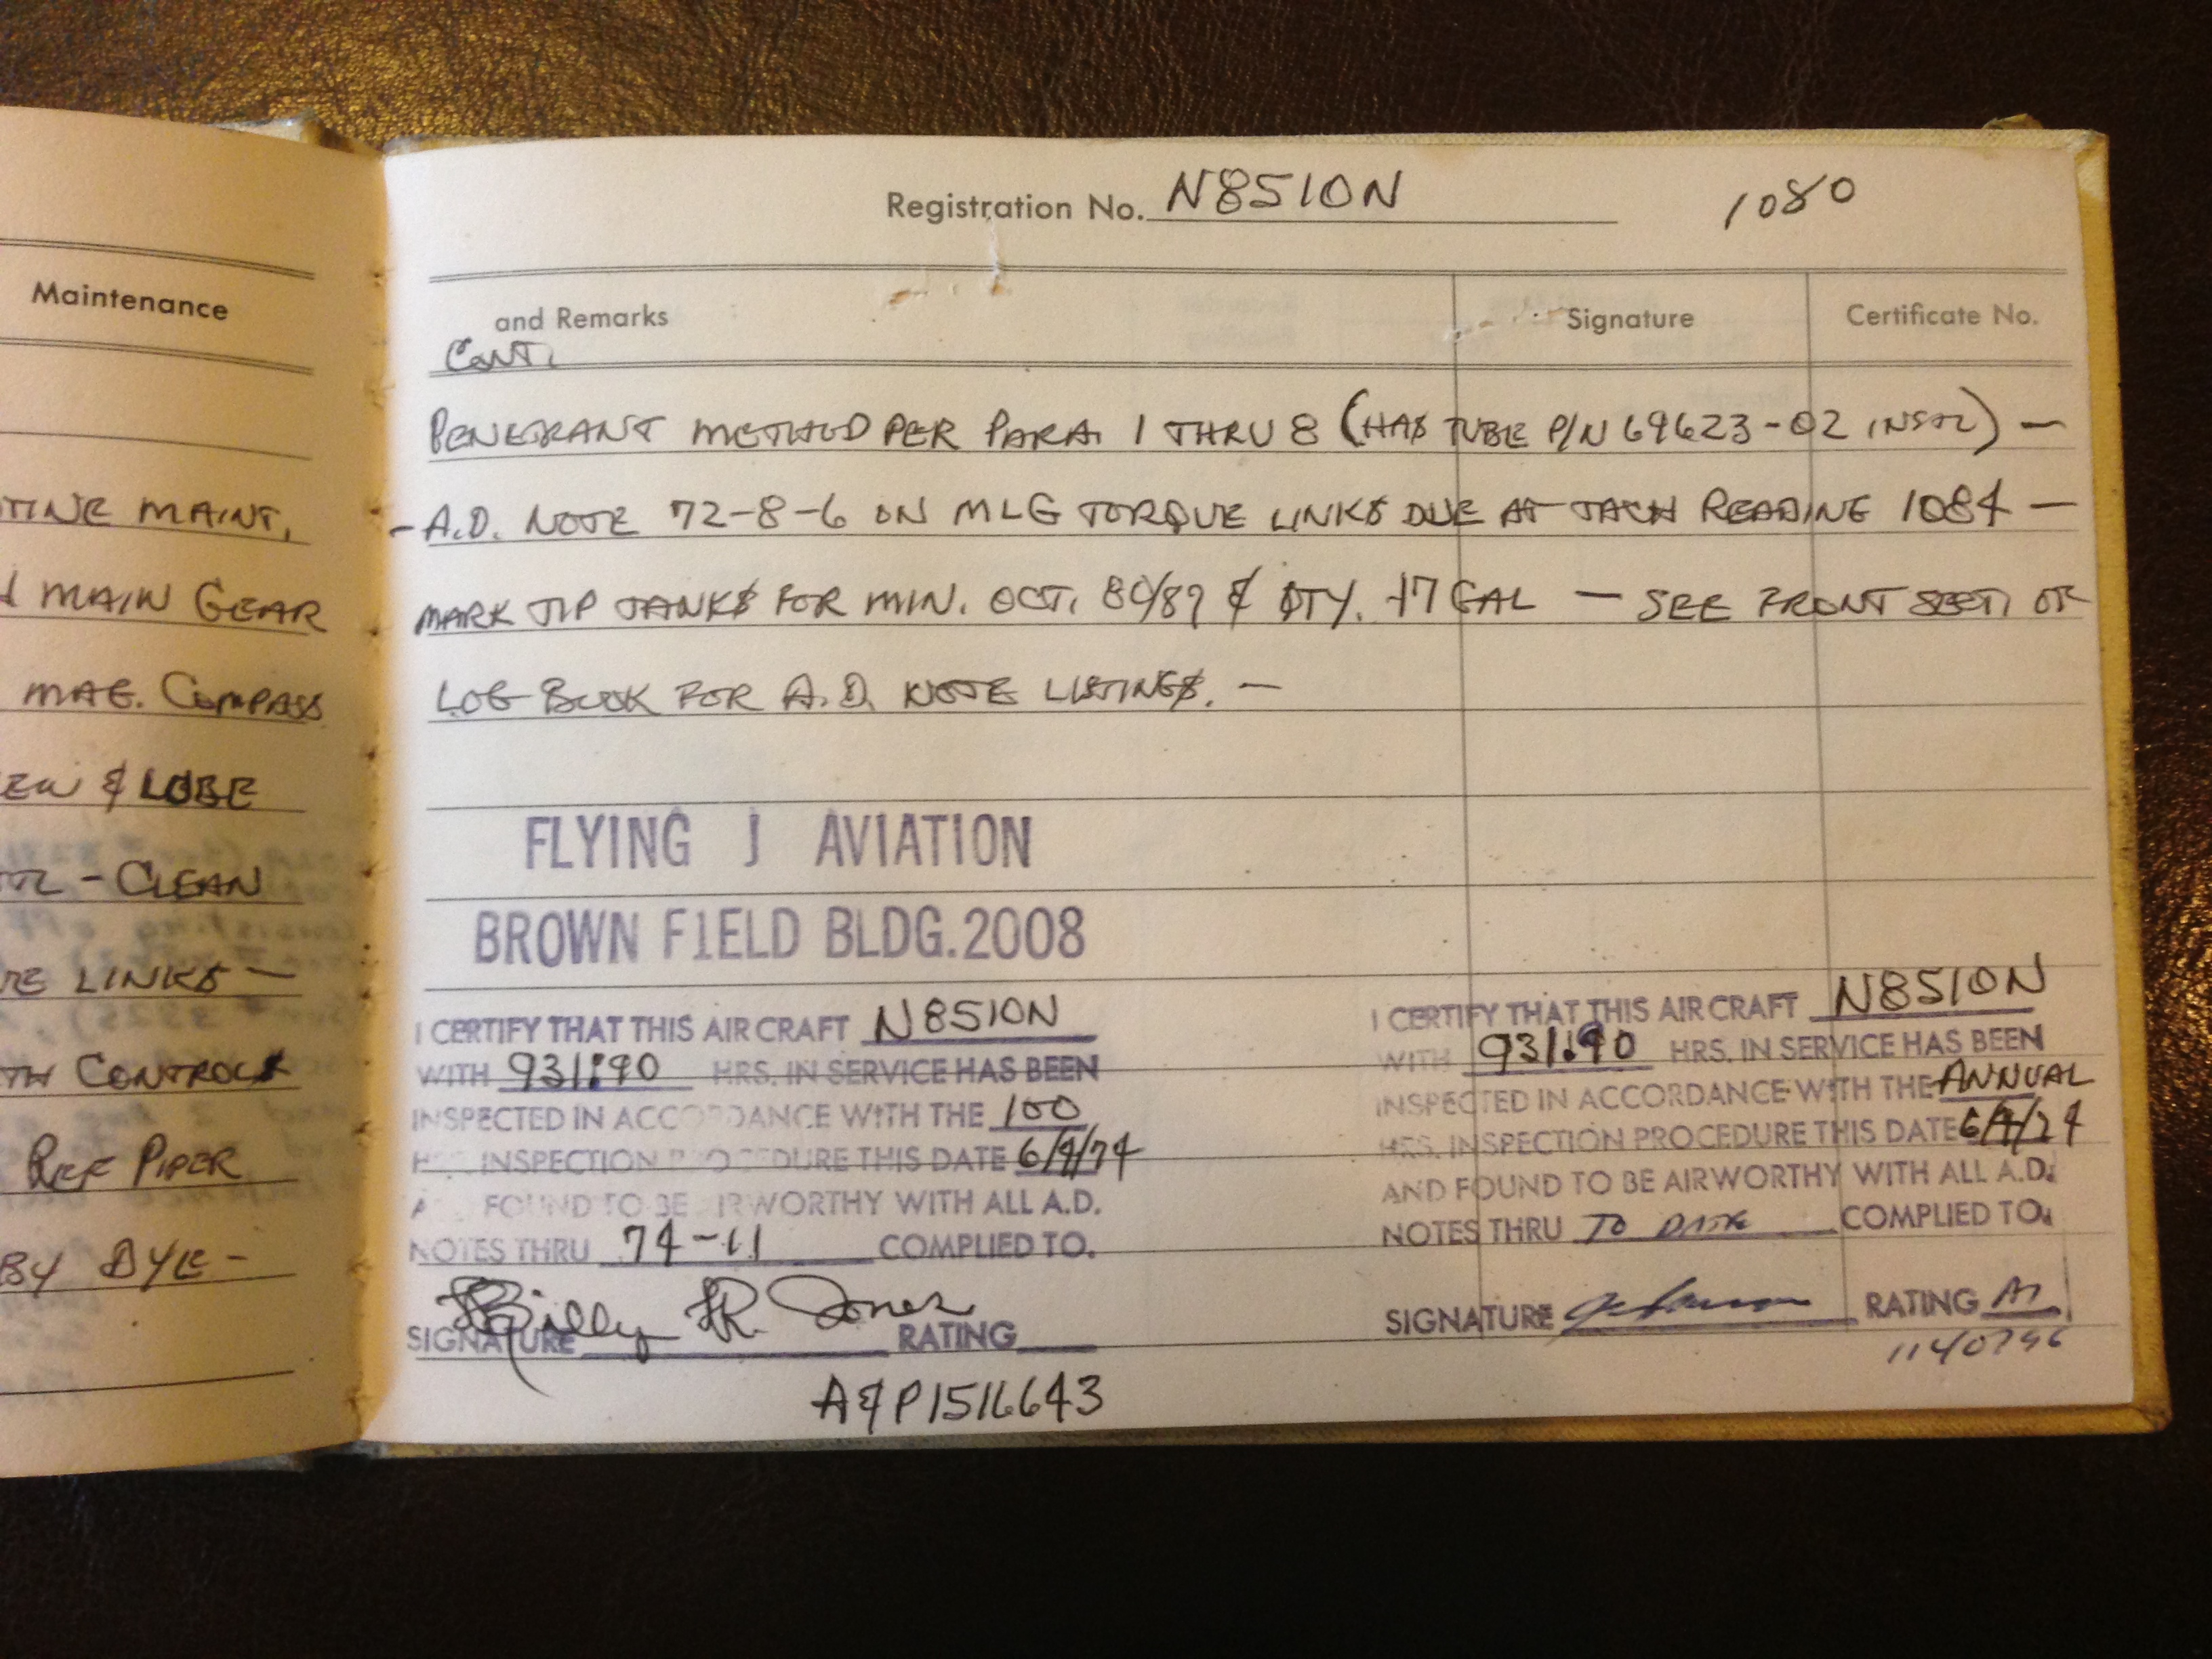 Maintenance
MAINT.
MAIN GEAR
MAG. COMPASS
& LOBE
- CLEAN
LINKS -
CONTROLS
REF PIPER
BY DYE -
Registration No. N8510N 1080
and Remarks Signature Certificate No.
CONT.
PENETRANT METHOD PER PARA. 1 THRU 8 (HAS TUBE P/N 69623-02 INSTL) -
- A.D. NOTE 72-8-6 ON MLG TORQUE LINKS DUE AT TACH READING 1084 -
MARK TIP TANKS FOR MIN. OCT. 80/87 & QTY. 17 GAL - SEE FRONT SECT. OF
LOG BOOK FOR A.D. NOTE LISTINGS. -
FLYING J AVIATION
BROWN FIELD BLDG.2008
I CERTIFY THAT THIS AIRCRAFT N8510N
WITH 931.90 HRS. IN SERVICE HAS BEEN
INSPECTED IN ACCORDANCE WITH THE 100
HRS. INSPECTION PROCEDURE THIS DATE 6/4/74
AND FOUND TO BE AIRWORTHY WITH ALL A.D.
NOTES THRU 74-11 COMPLIED TO.
SIGNATURE Billy R. Jones RATING
A&P1516643
I CERTIFY THAT THIS AIRCRAFT N8510N
WITH 931.90 HRS. IN SERVICE HAS BEEN
INSPECTED IN ACCORDANCE WITH THE ANNUAL
HRS. INSPECTION PROCEDURE THIS DATE 6/4/74
AND FOUND TO BE AIRWORTHY WITH ALL A.D.
NOTES THRU TO DATE COMPLIED TO.
SIGNATURE RATING AI
1140796